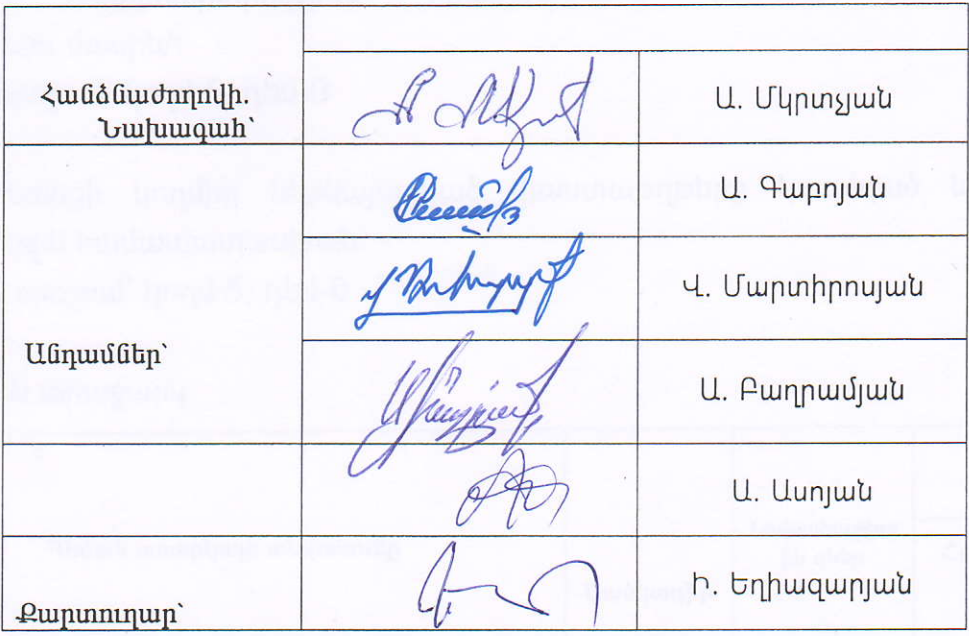 Հանձնաժողովի.
Նախագահ՝
Ա. Մկրտչյան
Ա. Գաբոյան
Վ. Մարտիրոսյան
Անդամներ՝
Ա. Բաղրամյան
Ա. Ասոյան
Քարտուղար՝
Ի. Եղիազարյան